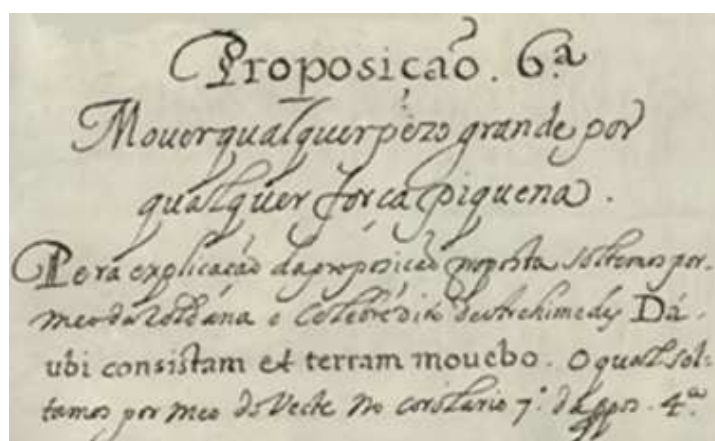 Proposição. 6.ª
Mover qualquer pezo grande por
qualquer força piquena.
Pera explicação da proposição proposta soltemos por
meo da Roldana o Celebre dito de Archimedes Dá
ubi consistam et terram mouebo. O qual sol-
tamos por meo do Vecte no corolario 7.º da ppos. 4.ª